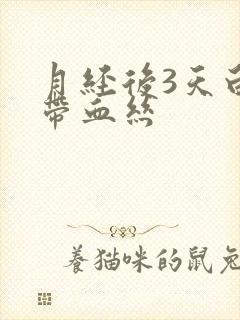 月经後3天白
帶血丝
養猫咪的鼠兔